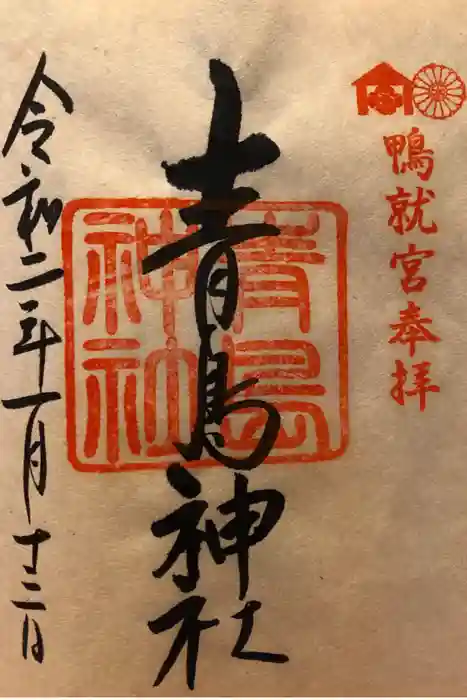 鴨就宮奉拝
青島神社
青島
神社
令和二年一月十二日